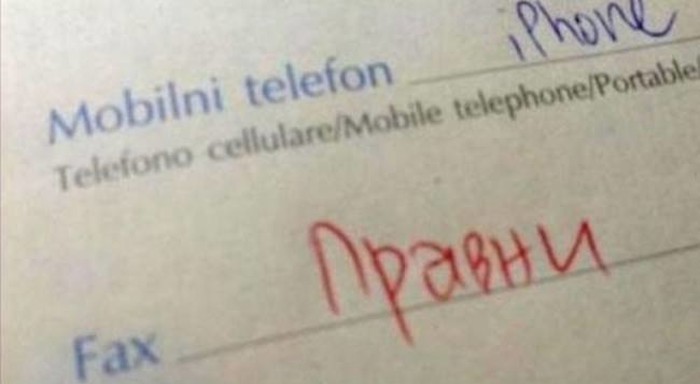 Mobilni telefon iPhone
Telefono cellulare/Mobile telephone/Portable/
Fax Правни